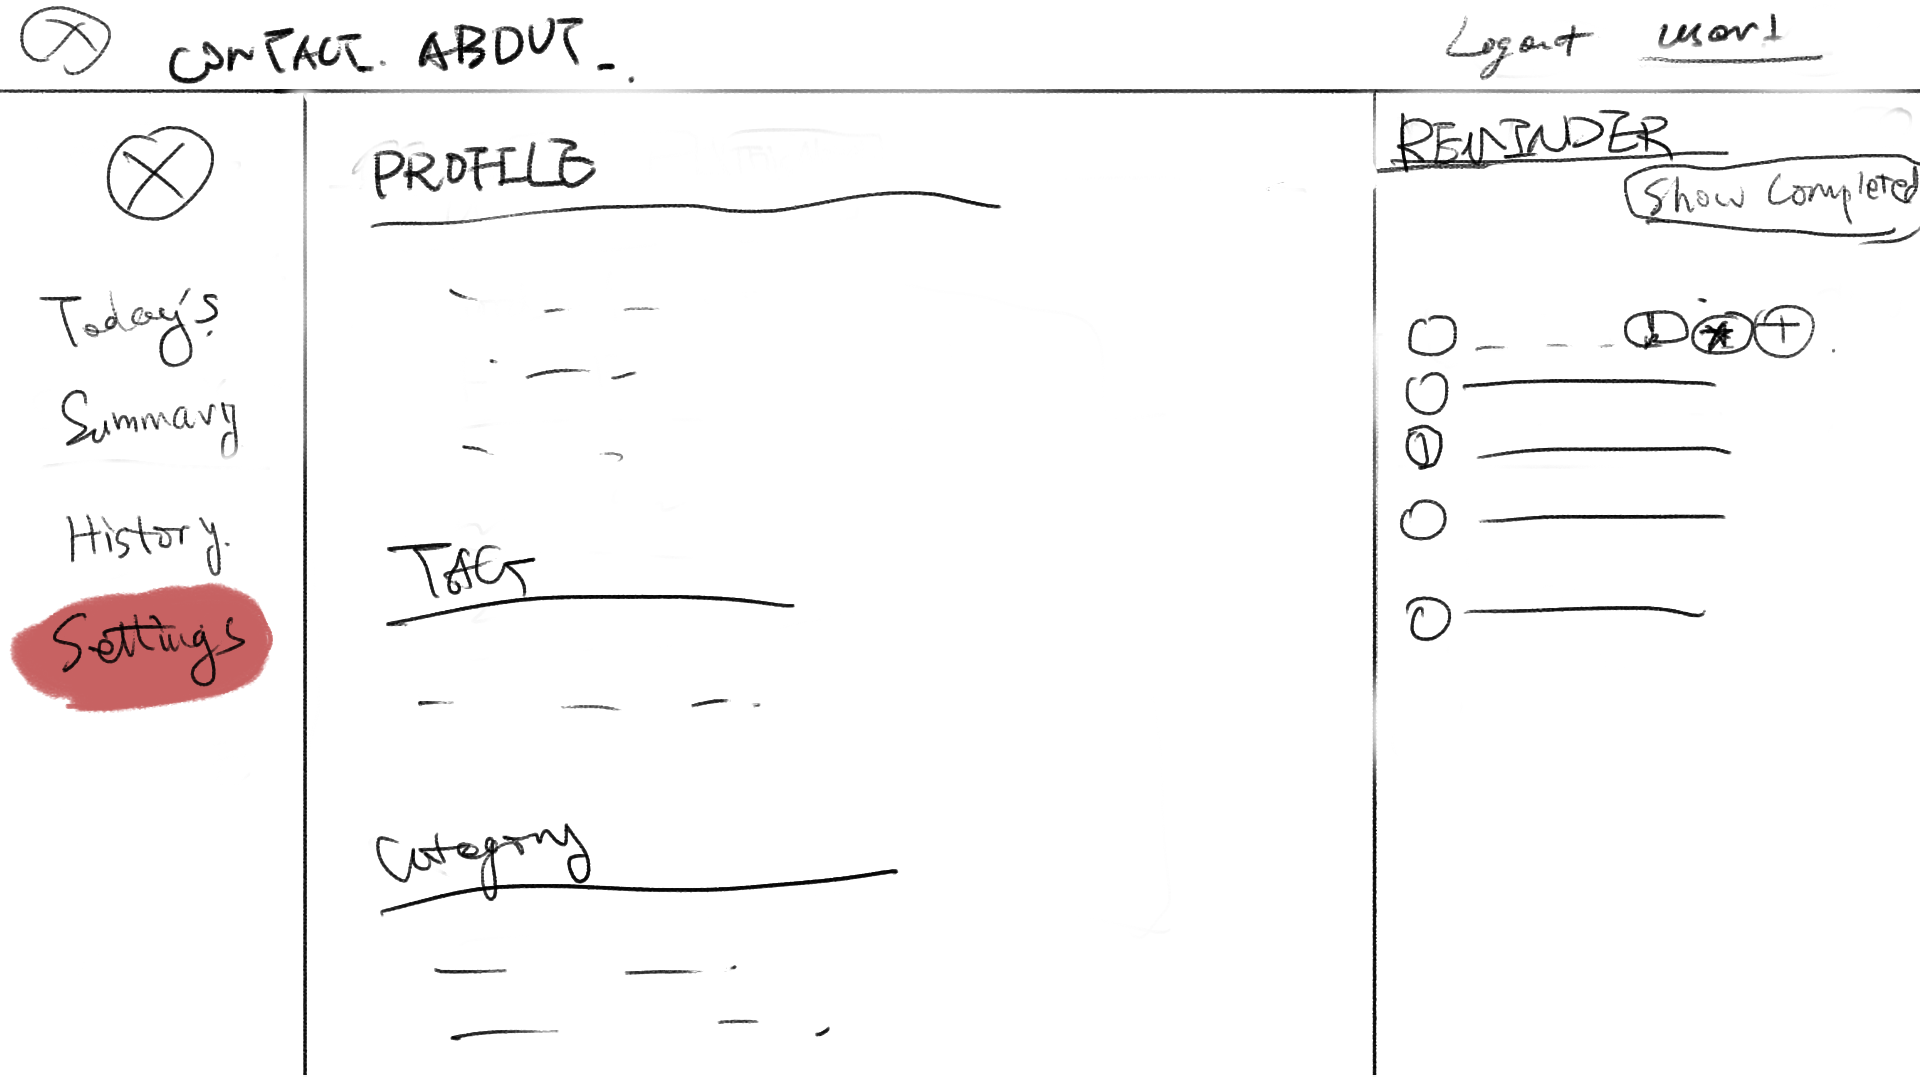 CONTACT. ABOUT
Logout user1
Today's
Summary
History.
Settings
PROFILE
TAG
Category
REMINDER
Show Completed